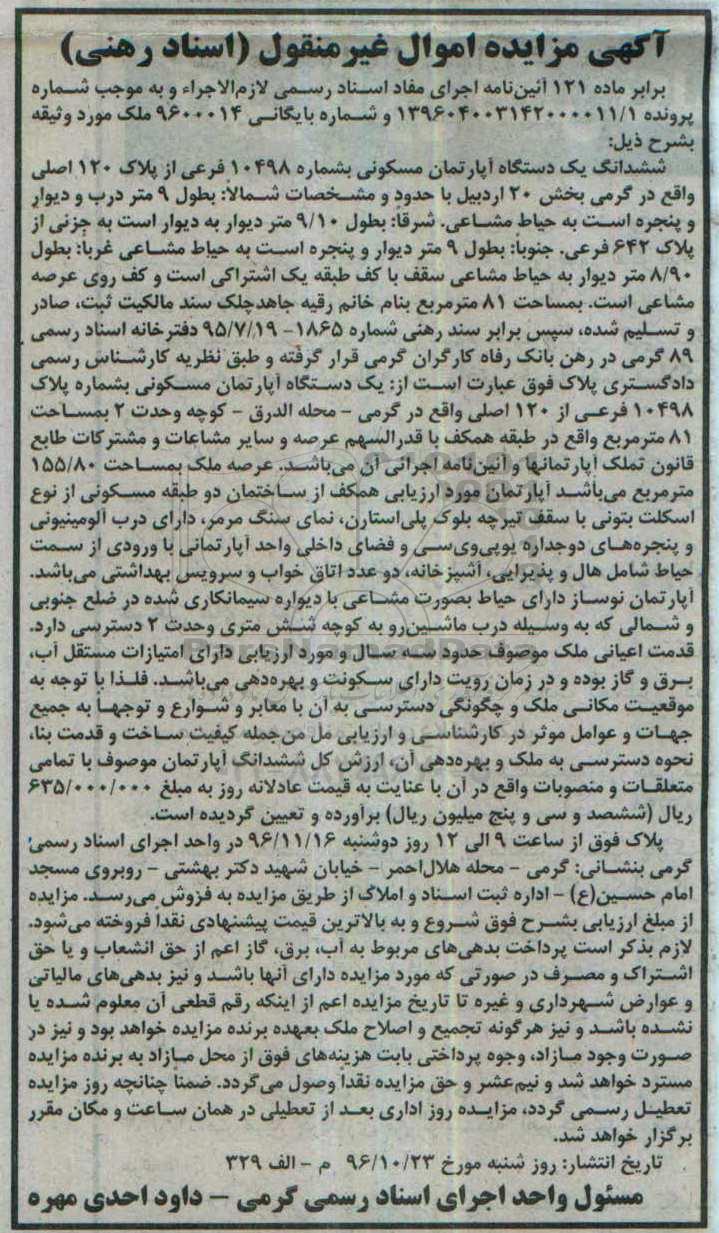 آگهی مزایده اموال غیرمنقول (اسناد رهنی)
برابر ماده ۱۲۱ آئین‌نامه اجرای مفاد اسناد رسمی لازم‌الاجراء و به موجب شماره
پرونده ۱۳۹۶۰۴۰۰۳۱۴۲۰۰۰۰۱۱/۱ و شماره بایگانی ۹۶۰۰۰۱۴ ملک مورد وثیقه
بشرح ذیل:
ششدانگ یک دستگاه آپارتمان مسکونی بشماره ۱۰۴۹۸ فرعی از پلاک ۱۲۰ اصلی
واقع در گرمی بخش ۲۰ اردبیل با حدود و مشخصات شمالاً: بطول ۹ متر درب و دیوار
و پنجره است به حیاط مشاعی. شرقاً: بطول ۹/۱۰ متر دیوار به دیوار است به جزئی از
پلاک ۶۴۲ فرعی. جنوباً: بطول ۹ متر دیوار و پنجره است به حیاط مشاعی غرباً: بطول
۸/۹۰ متر دیوار به حیاط مشاعی سقف با کف طبقه یک اشتراکی است و کف روی عرصه
مشاعی است. بمساحت ۸۱ مترمربع بنام خانم رقیه جاهدچلک سند مالکیت ثبت، صادر
و تسلیم شده، سپس برابر سند رهنی شماره ۱۸۶۵- ۹۵/۷/۱۹ دفترخانه اسناد رسمی
۸۹ گرمی در رهن بانک رفاه کارگران گرمی قرار گرفته و طبق نظریه کارشناس رسمی
دادگستری پلاک فوق عبارت است از: یک دستگاه آپارتمان مسکونی بشماره پلاک
۱۰۴۹۸ فرعی از ۱۲۰ اصلی واقع در گرمی - محله الدرق - کوچه وحدت ۲ بمساحت
۸۱ مترمربع واقع در طبقه همکف با قدرالسهم عرصه و سایر مشاعات و مشترکات طابع
قانون تملک آپارتمانها و آئین‌نامه اجرائی آن می‌باشد. عرصه ملک بمساحت ۱۵۵/۸۰
مترمربع می‌باشد آپارتمان مورد ارزیابی همکف از ساختمان دو طبقه مسکونی از نوع
اسکلت بتونی با سقف تیرچه بلوک پلی‌استارن، نمای سنگ مرمر، دارای درب آلومینیونی
و پنجره‌های دوجداره یوپی‌وی‌سی و فضای داخلی واحد آپارتمانی با ورودی از سمت
حیاط شامل هال و پذیرایی، آشپزخانه، دو عدد اتاق خواب و سرویس بهداشتی می‌باشد.
آپارتمان نوساز دارای حیاط بصورت مشاعی با دیواره سیمانکاری شده در ضلع جنوبی
و شمالی که به وسیله درب ماشین‌رو به کوچه شش متری وحدت ۲ دسترسی دارد.
قدمت اعیانی ملک موصوف حدود سه سال و مورد ارزیابی دارای امتیازات مستقل آب،
برق و گاز بوده و در زمان رویت دارای سکونت و بهره‌دهی می‌باشد. فلذا با توجه به
موقعیت مکانی ملک و چگونگی دسترسی به آن با معابر و شوارع و توجهاً به جمیع
جهات و عوامل موثر در کارشناسی و ارزیابی مل من‌جمله کیفیت ساخت و قدمت بنا،
نحوه دسترسی به ملک و بهره‌دهی آن، ارزش کل ششدانگ آپارتمان موصوف با تمامی
متعلقات و منصوبات واقع در آن با عنایت به قیمت عادلانه روز به مبلغ ۶۳۵/۰۰۰/۰۰۰
ریال (ششصد و سی و پنج میلیون ریال) برآورده و تعیین گردیده است.
پلاک فوق از ساعت ۹ الی ۱۲ روز دوشنبه ۹۶/۱۱/۱۶ در واحد اجرای اسناد رسمی
گرمی بنشانی: گرمی - محله هلال‌احمر - خیابان شهید دکتر بهشتی - روبروی مسجد
امام حسین(ع) - اداره ثبت اسناد و املاک از طریق مزایده به فروش می‌رسد. مزایده
از مبلغ ارزیابی بشرح فوق شروع و به بالاترین قیمت پیشنهادی نقداً فروخته می‌شود.
لازم بذکر است پرداخت بدهی‌های مربوط به آب، برق، گاز اعم از حق انشعاب و یا حق
اشتراک و مصرف در صورتی که مورد مزایده دارای آنها باشد و نیز بدهی‌های مالیاتی
و عوارض شهرداری و غیره تا تاریخ مزایده اعم از اینکه رقم قطعی آن معلوم شده یا
نشده باشد و نیز هرگونه تجمیع و اصلاح ملک بعهده برنده مزایده خواهد بود و نیز در
صورت وجود مازاد، وجوه پرداختی بابت هزینه‌های فوق از محل مازاد به برنده مزایده
مسترد خواهد شد و نیم‌عشر و حق مزایده نقداً وصول می‌گردد. ضمناً چنانچه روز مزایده
تعطیل رسمی گردد، مزایده روز اداری بعد از تعطیلی در همان ساعت و مکان مقرر
برگزار خواهد شد.
تاریخ انتشار: روز شنبه مورخ ۹۶/۱۰/۲۳ م - الف ۳۲۹
مسئول واحد اجرای اسناد رسمی گرمی - داود احدی مهره